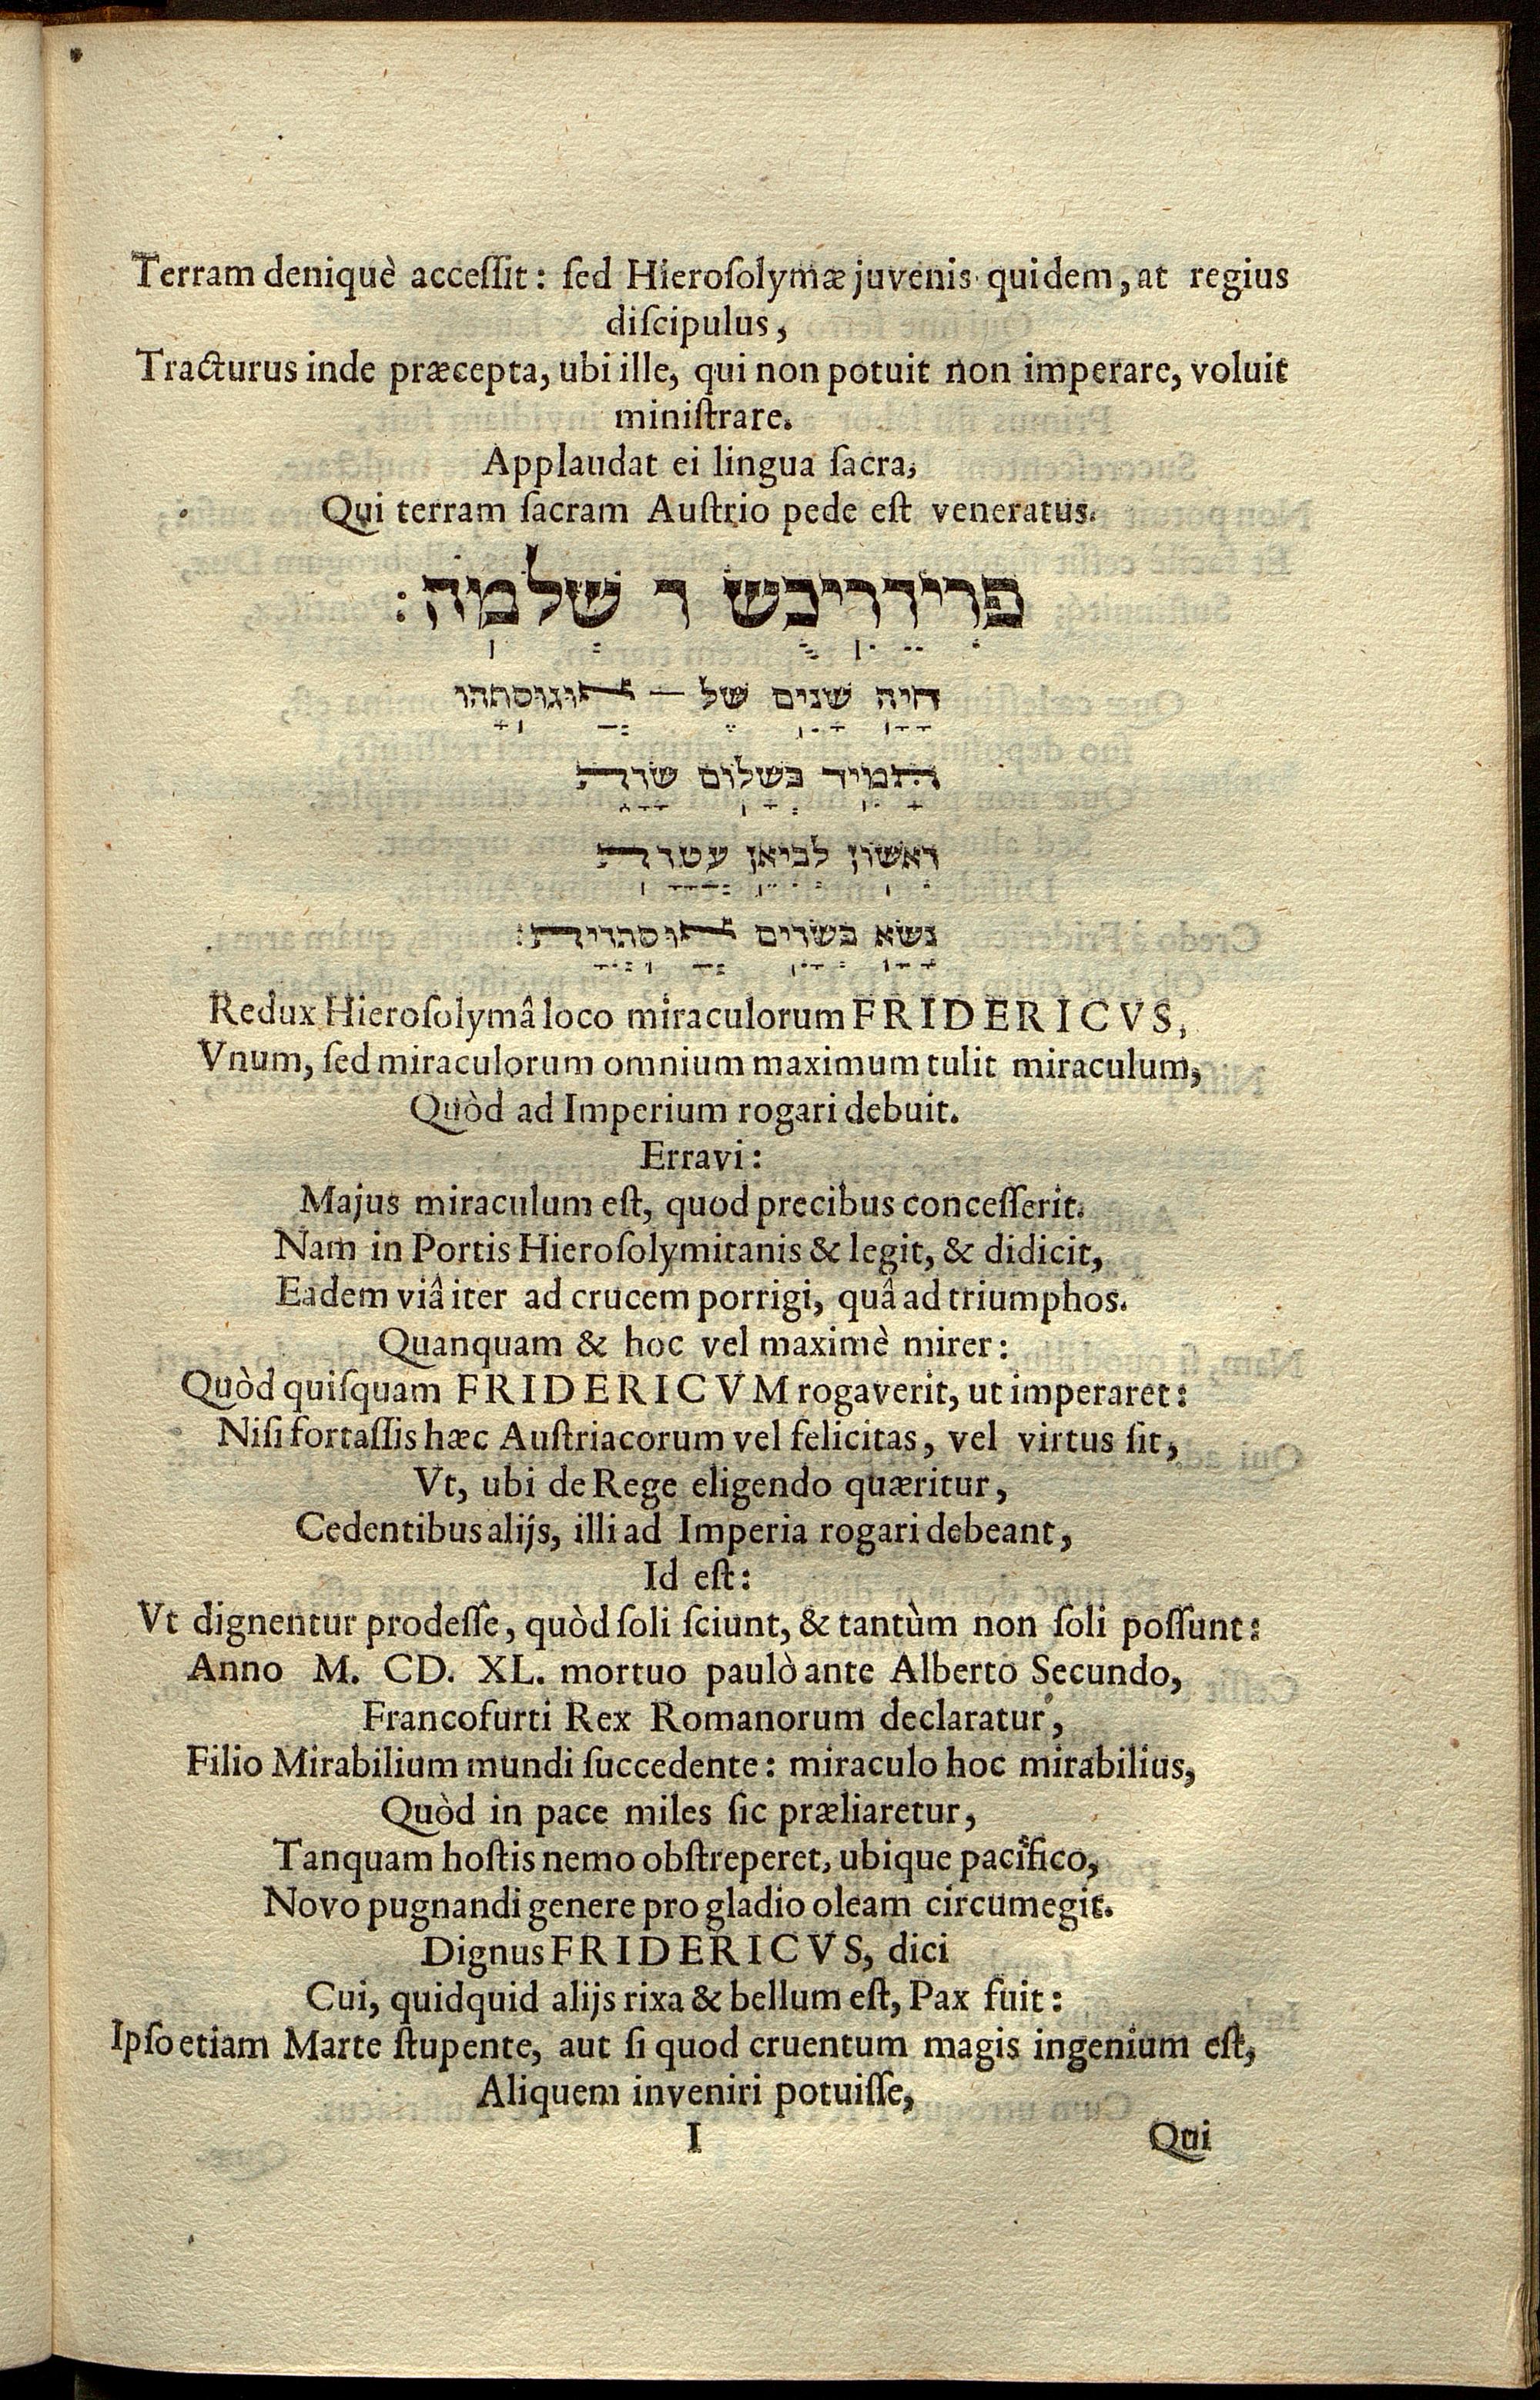 Terram deniquè accessit: sed Hierosolymæ juvenis quidem, at regius
discipulus,
Tracturus inde præcepta, ubi ille, qui non potuit non imperare, voluit
ministrare.
Applaudat ei lingua sacra,
Qui terram sacram Austrio pede est veneratus.
פרידריכש ד שלמה:
חיה שנים של — אוגוסתהו
תמיד בשלום שורת
ראשון לביאן עטרת
נשא בשרים אוסתרית:
Redux Hierosolymâ loco miraculorum FRIDERICVS,
Vnum, sed miraculorum omnium maximum tulit miraculum,
Quòd ad Imperium rogari debuit.
Erravi:
Majus miraculum est, quod precibus concesserit.
Nam in Portis Hierosolymitanis & legit, & didicit,
Eadem viâ iter ad crucem porrigi, quâ ad triumphos.
Quanquam & hoc vel maximè mirer:
Quòd quisquam FRIDERICVM rogaverit, ut imperaret:
Nisi fortassis hæc Austriacorum vel felicitas, vel virtus sit,
Vt, ubi de Rege eligendo quæritur,
Cedentibus alijs, illi ad Imperia rogari debeant,
Id est:
Vt dignentur prodesse, quòd soli sciunt, & tantùm non soli possunt:
Anno M. CD. XL. mortuo paulò ante Alberto Secundo,
Francofurti Rex Romanorum declaratur,
Filio Mirabilium mundi succedente: miraculo hoc mirabilius,
Quòd in pace miles sic præliaretur,
Tanquam hostis nemo obstreperet, ubique pacifico,
Novo pugnandi genere pro gladio oleam circumegit.
Dignus FRIDERICVS, dici
Cui, quidquid alijs rixa & bellum est, Pax fuit:
Ipso etiam Marte stupente, aut si quod cruentum magis ingenium est,
Aliquem inveniri potuisse,
I Qui